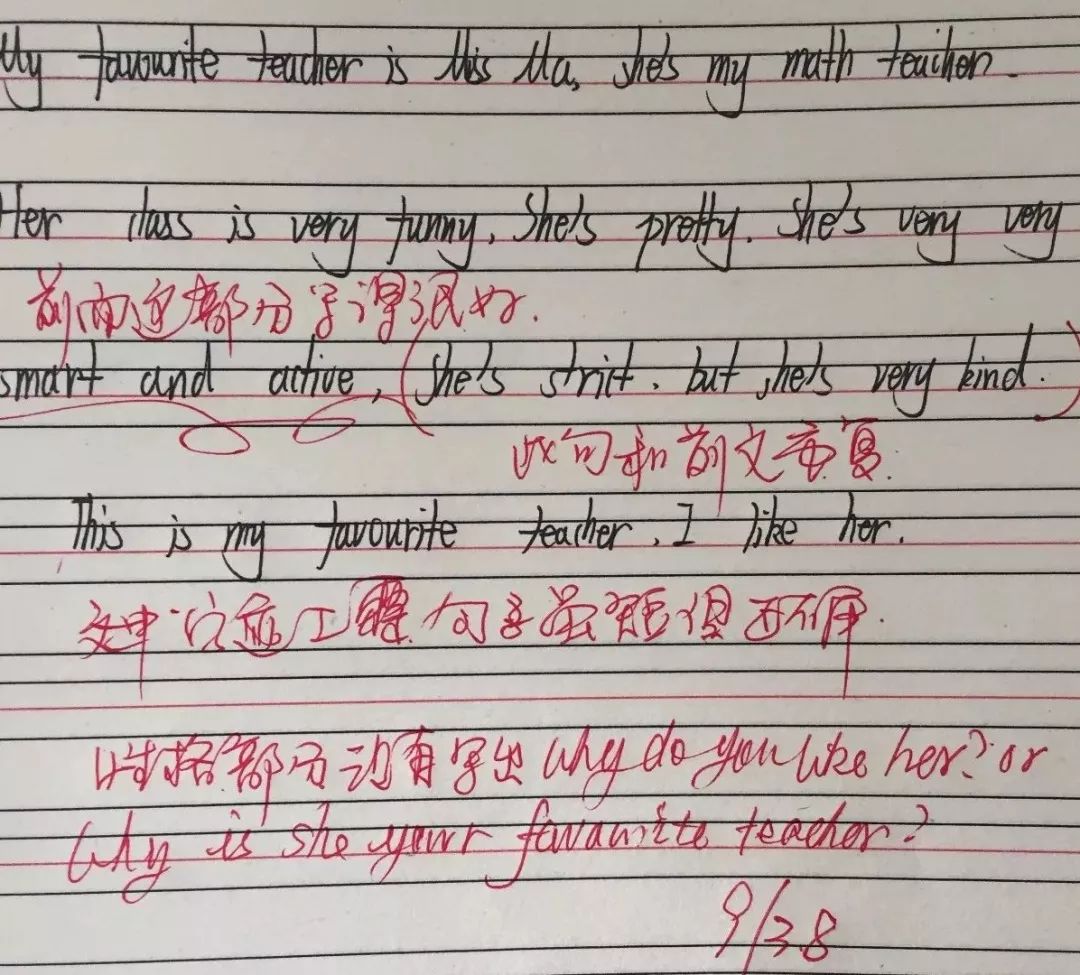 My favourite teacher is Miss Ma, she's my math teacher.
Her class is very funny. She's pretty. She's very very
前面这部分写得很好.
smart and active, (She's strict. but she's very kind.)
此句和前文重复.
This is my favourite teacher. I like her.
文中 句子虽短但
部分没有写出 why do you like her? or
Why is she your favourite teacher?